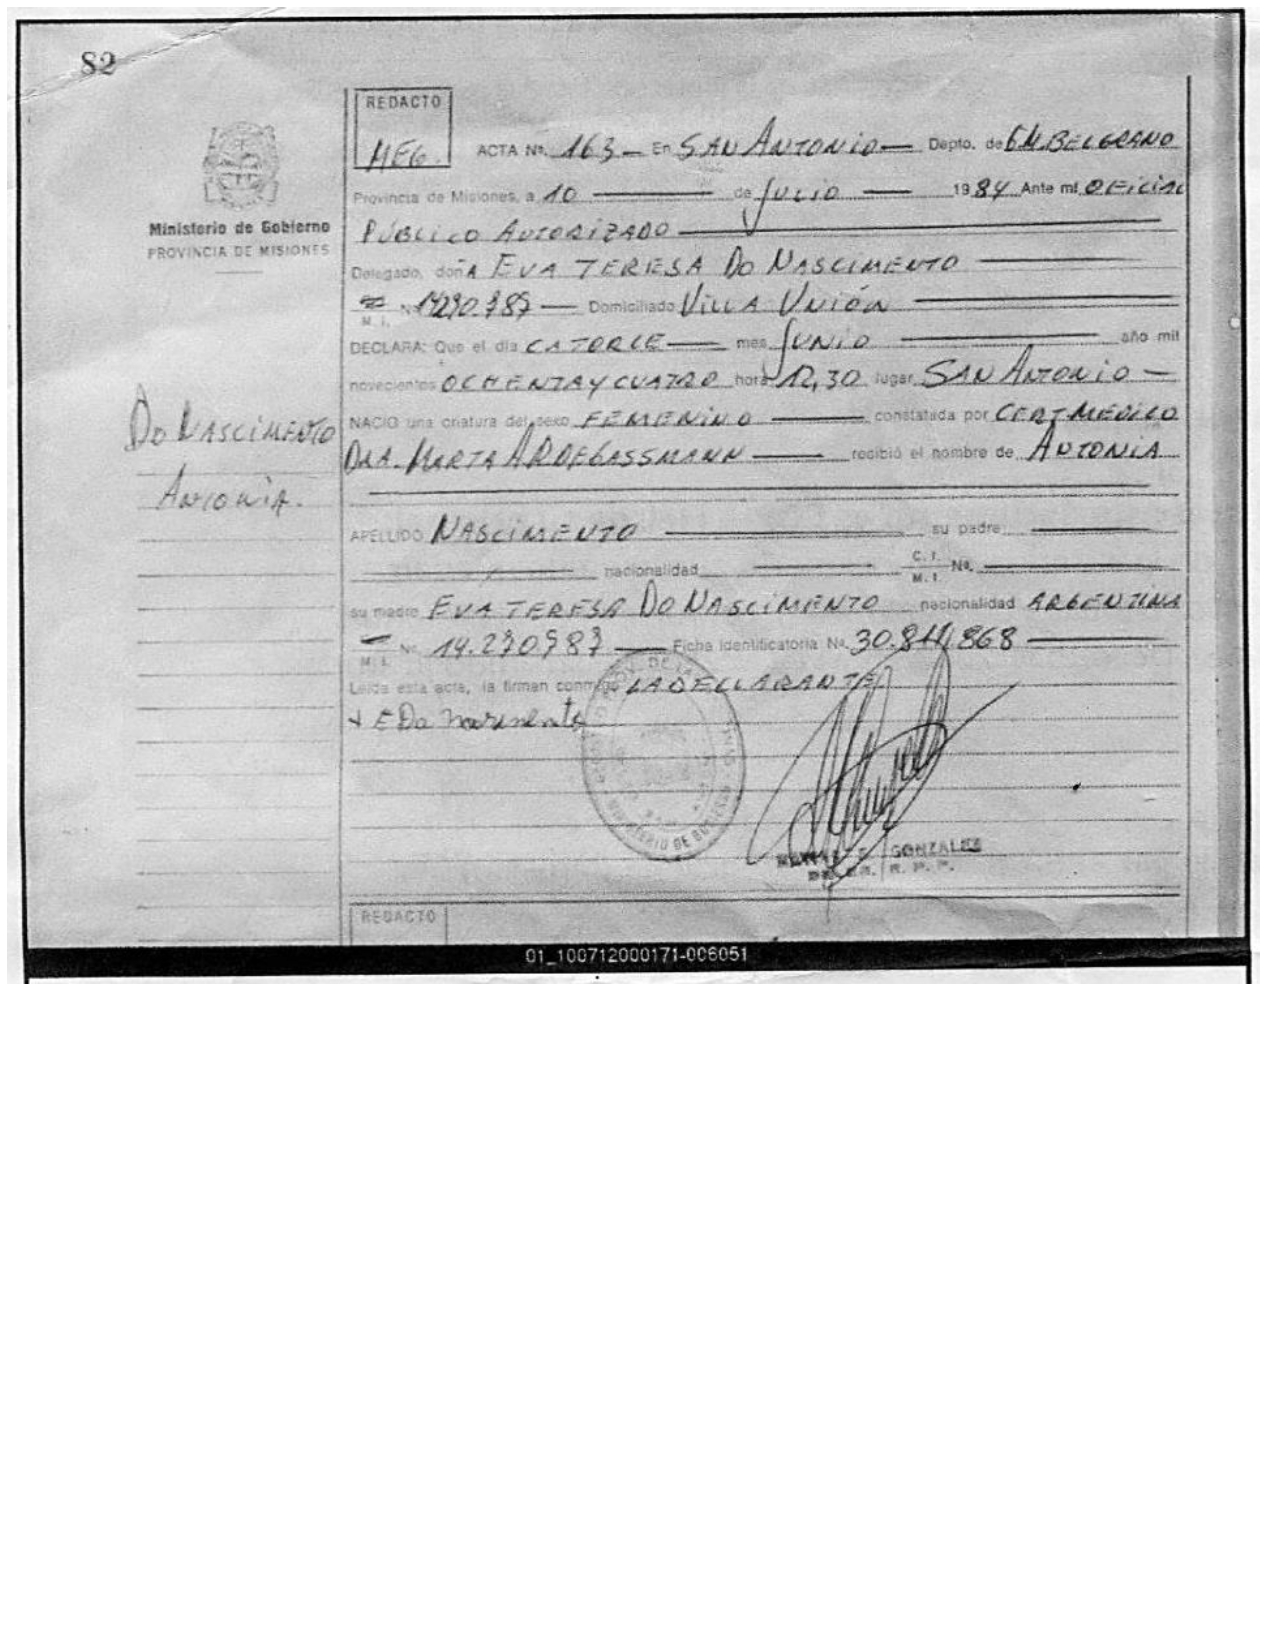 82
REDACTO
MEG.
ACTA Nº. 163 - En SAN ANTONIO - Depto. de GM. BELGRANO
Provincia de Misiones, a 10 de JULIO 1984 Ante mí OFICIAL
Ministerio de Gobierno
PROVINCIA DE MISIONES
PÚBLICO AUTORIZADO
Delegado, doña EVA TERESA DO NASCIMENTO
M. I. Nº Domiciliado VILLA UNIÓN
DECLARA: Que el día CATORCE mes JUNIO año mil
novecientos OCHENTA Y CUATRO hora 12,30 lugar SAN ANTONIO -
NACIO una criatura del sexo FEMENINO constatada por CERT. MEDICO
DO NASCIMENTO
DRA. MARTA recibió el nombre de ANTONIA
ANTONIA.
APELLIDO NASCIMENTO su padre
nacionalidad C. I. M. I. Nº.
su madre EVA TERESA DO NASCIMENTO nacionalidad ARGENTINA
M. I. Nº 14.230.787 Ficha identificatoria Nº. 30.811.868
Leída esta acta, la firman conmigo LA DECLARANTE
MINISTERIO DE
GONZALEZ
R. P. P.
REDACTO
01_100712000171-006051